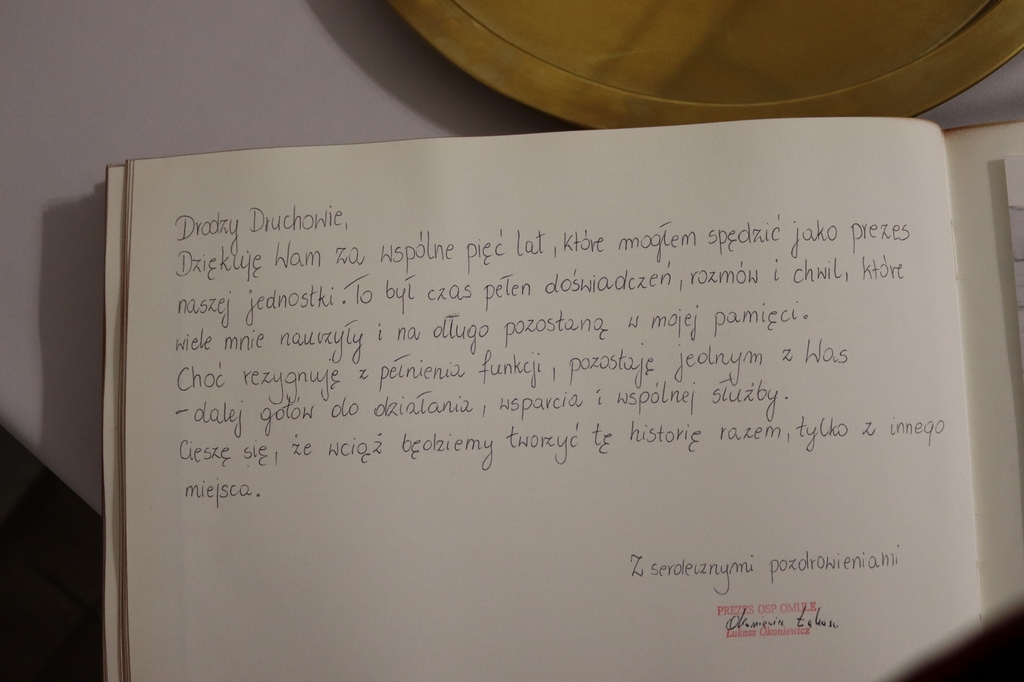 Drodzy Druchowie,
Dziękuję Wam za wspólne pięć lat, które mogłem spędzić jako prezes
naszej jednostki. To był czas pełen doświadczeń, rozmów i chwil, które
wiele mnie nauczyły i na długo pozostaną w mojej pamięci.
Choć rezygnuję z pełnienia funkcji, pozostaję jednym z Was
- dalej gotów do działania, wsparcia i wspólnej służby.
Cieszę się, że wciąż będziemy tworzyć tę historię razem, tylko z innego
miejsca.
Z serdecznymi pozdrowieniami
PREZES OSP OMULE
Okoniewicz Łukasz
Łukasz Okoniewicz